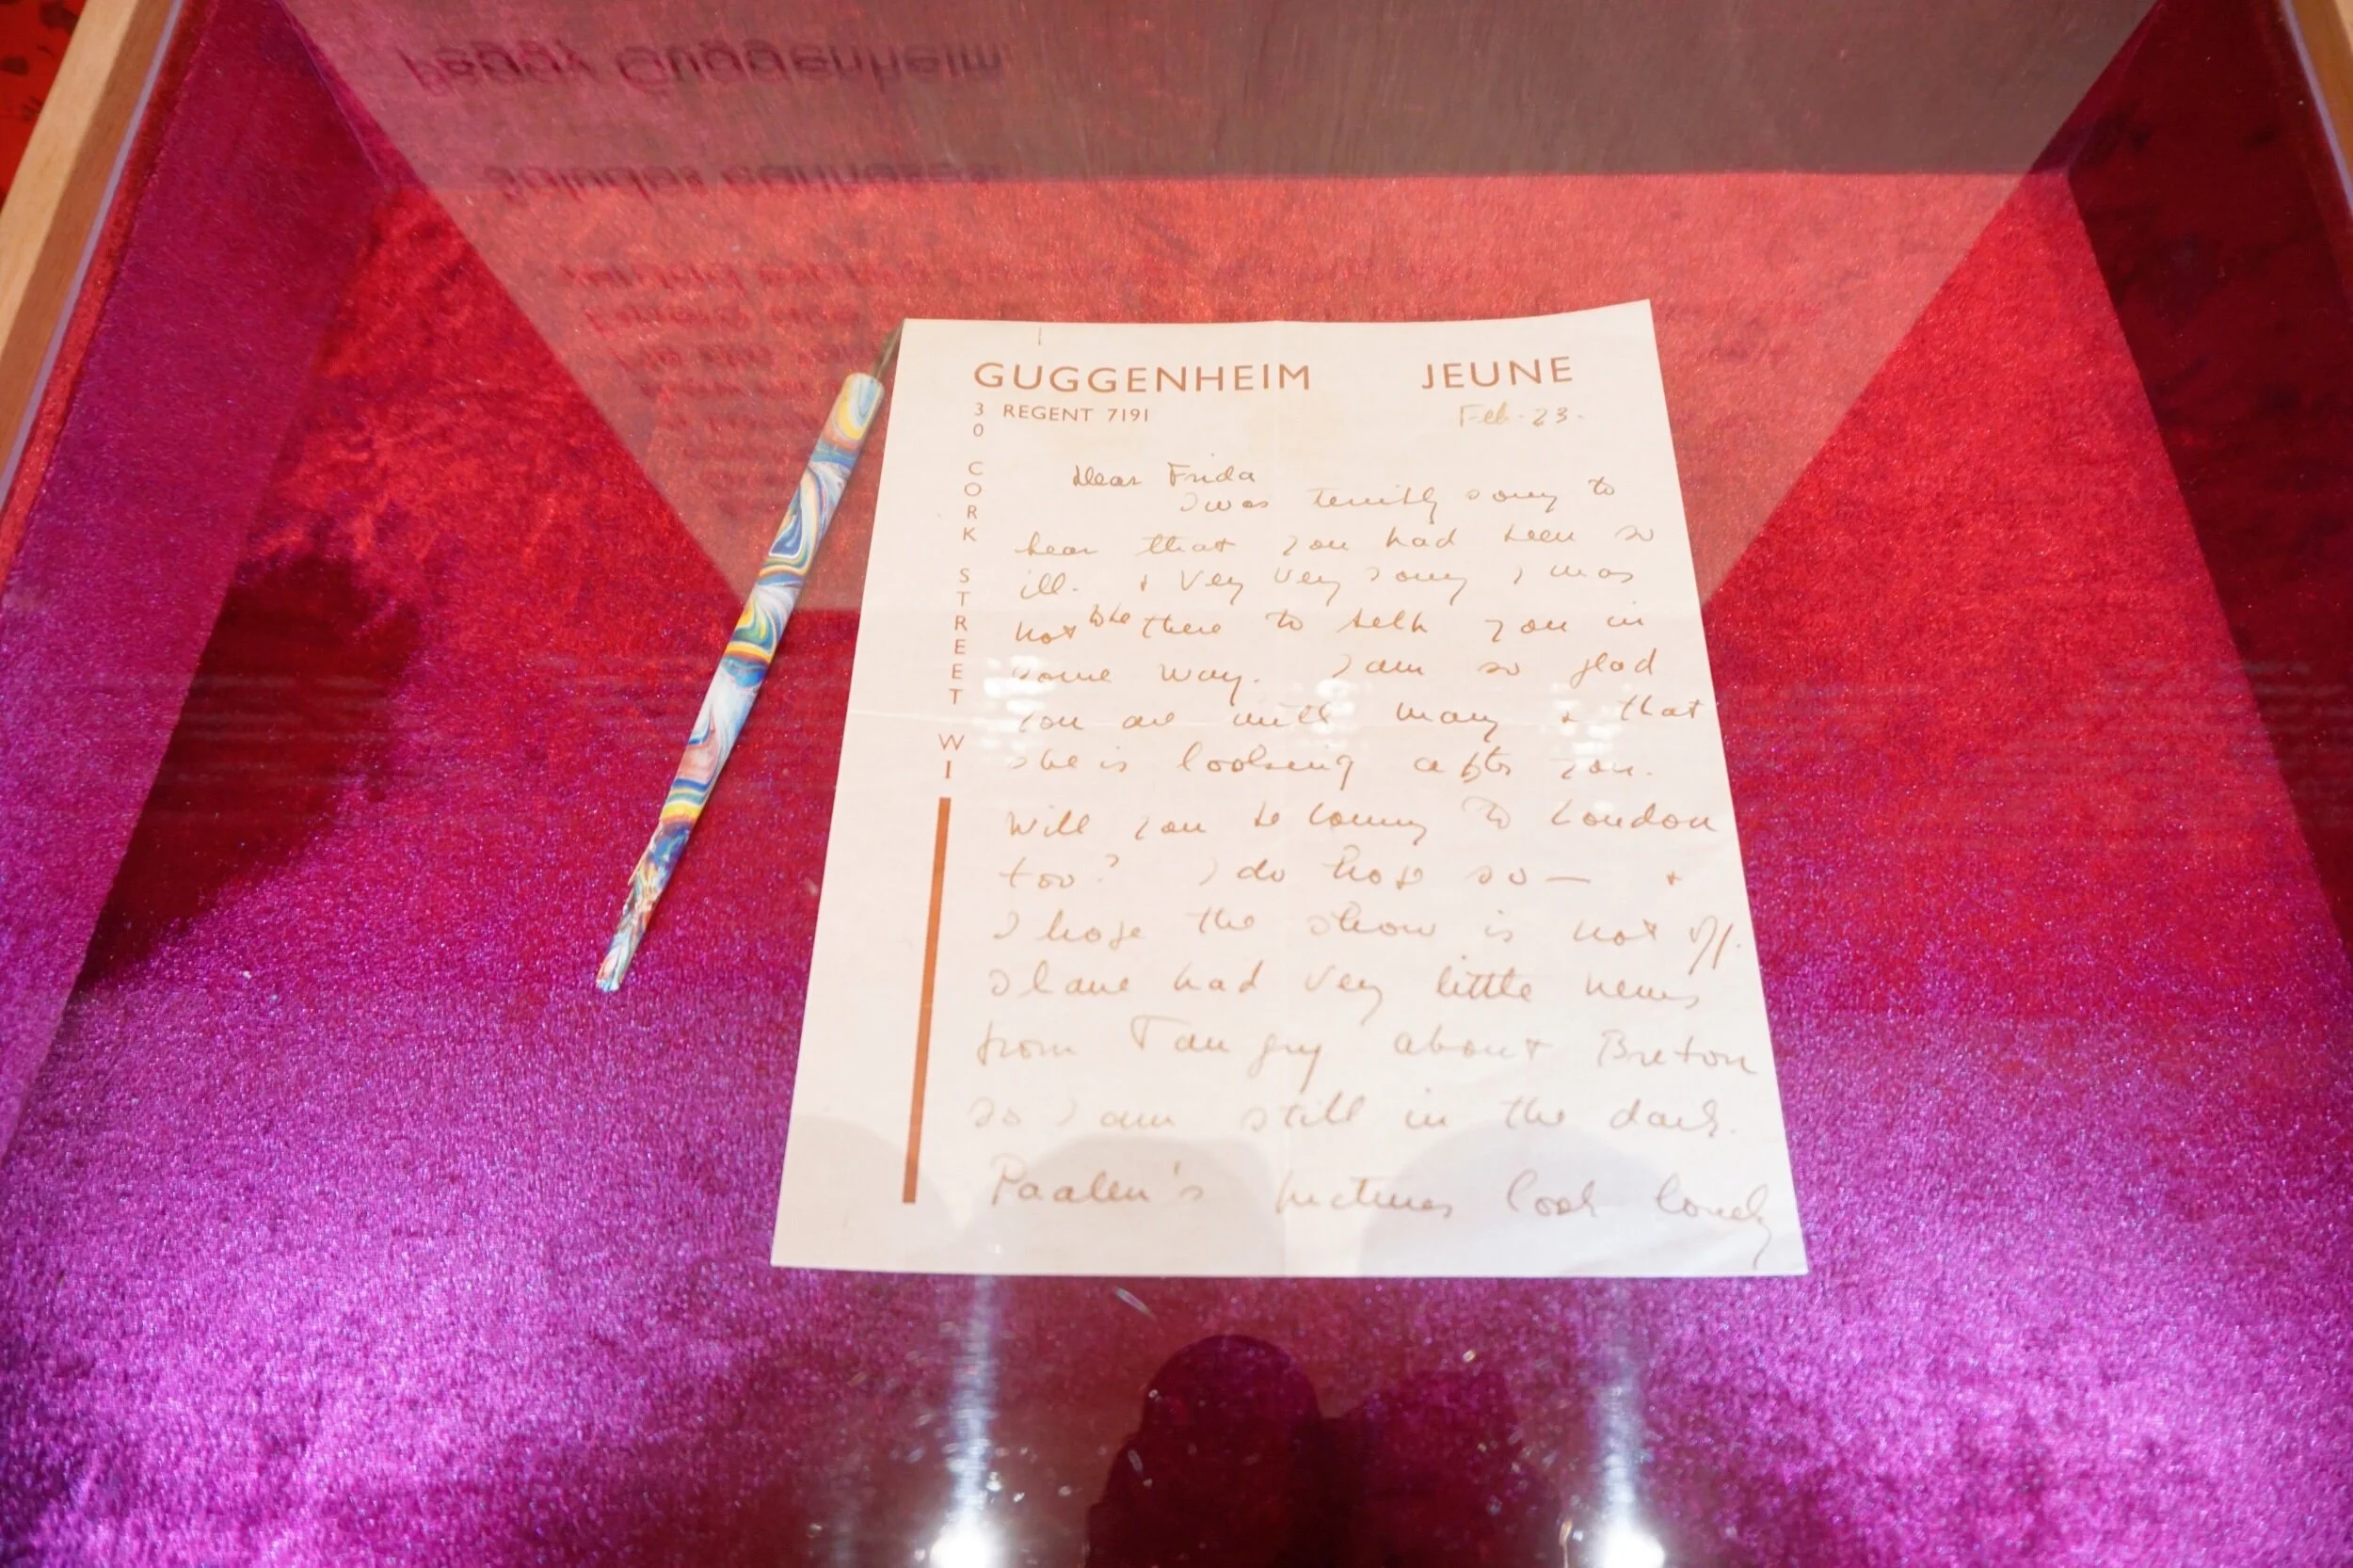 Peggy Guggenheim
GUGGENHEIM JEUNE
30 CORK STREET W1
REGENT 7191
Feb-23-
Dear Frida
I was terribly sorry to
hear that you had been so
ill. & Very Very sorry I was
not there to help you in
some way. I am so glad
you are with Mary & that
she is looking after you.
Will you be coming to London
too? I do hope so — &
I hope the show is not off.
I have had very little news
from Tanguy about Breton
so I am still in the dark.
Paalen's pictures look lovely